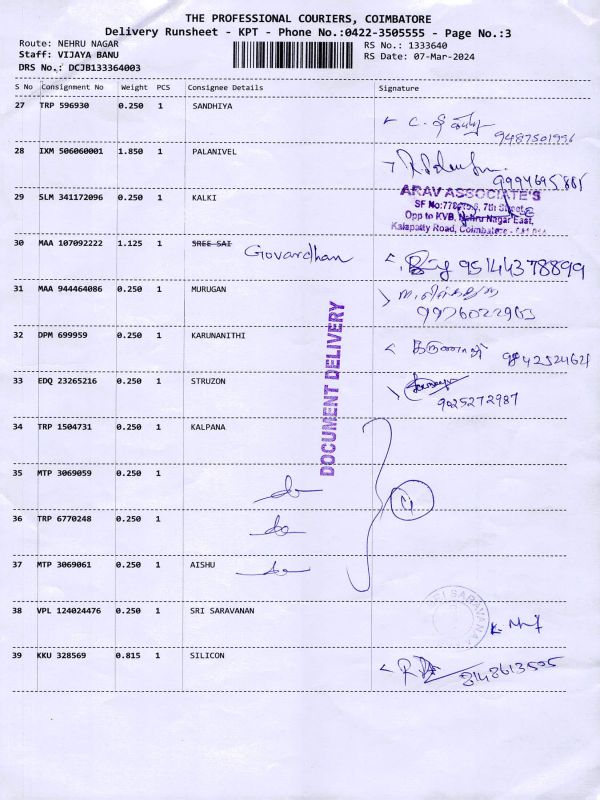 THE PROFESSIONAL COURIERS, COIMBATORE
Delivery Runsheet - KPT - Phone No.:0422-3505555 - Page No.:3
Route: NEHRU NAGAR
RS No.: 1333640
Staff: VIJAYA BANU
RS Date: 07-Mar-2024
DRS No.: DCJB133364003
S No Consignment No Weight PCS Consignee Details Signature
27 TRP 596930 0.250 1 SANDHIYA
9487501996
28 IXM 506060001 1.850 1 PALANIVEL
29 SLM 341172096 0.250 1 KALKI
ARAV ASSOCIATE'S
7th Street
Opp to KVB, Nehru Nagar East,
Kalapatty Road, Coimbatore
30 MAA 107092222 1.125 1 SREE SAI Govardhan 95144378899
31 MAA 944464086 0.250 1 MURUGAN
32 DPM 699959 0.250 1 KARUNANITHI
கருணாநிதி 9842524621
33 EDQ 23265216 0.250 1 STRUZON
9025272987
DOCUMENT DELIVERY
34 TRP 1504731 0.250 1 KALPANA
35 MTP 3069059 0.250 1
do
36 TRP 6770248 0.250 1
do
37 MTP 3069061 0.250 1 AISHU
do
38 VPL 124024476 0.250 1 SRI SARAVANAN
SARAVANA
39 KKU 328569 0.815 1 SILICON
8148613505